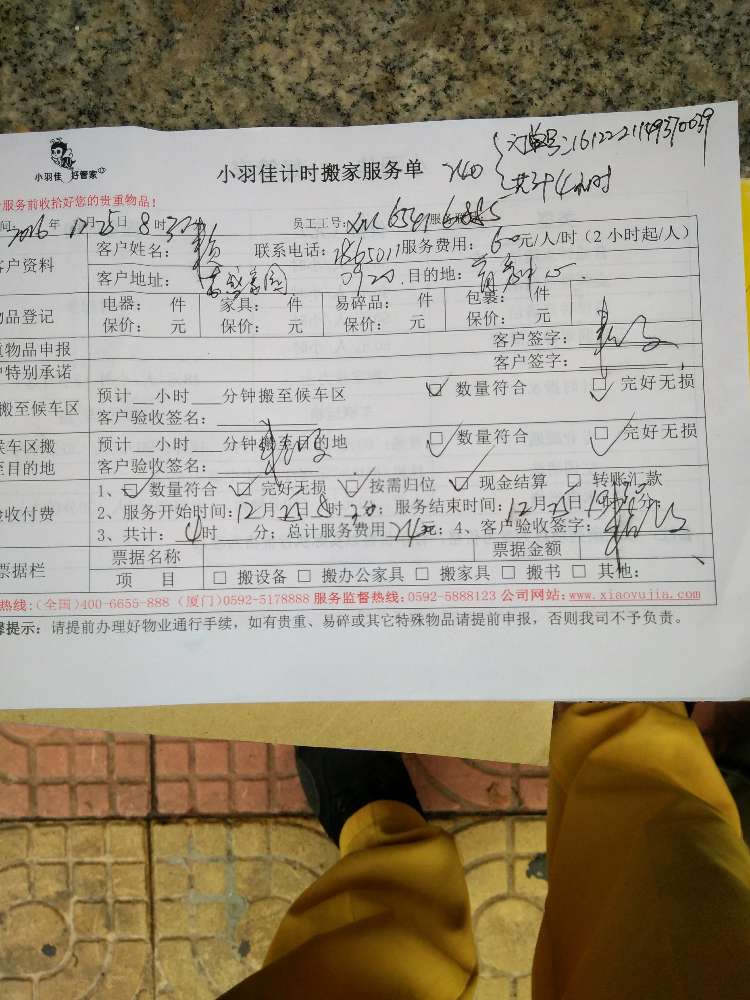 订单号:1612221149370039
小羽佳 好管家
小羽佳计时搬家服务单 240
共计4小时
服务前收拾好您的贵重物品!
间:2016年12月25日8时30 员工工号:
客户资料 客户姓名:赖 联系电话:1865011 服务费用:60元/人/时(2小时起/人)
客户地址: 0920 目的地:
物品登记 电器: 件 家具: 件 易碎品: 件 包裹: 件
保价: 元 保价: 元 保价: 元 保价: 元
重物品申报 客户签字:
户特别承诺 客户签字:
搬至候车区 预计__小时___分钟搬至候车区 ☑ 数量符合 ☑ 完好无损
客户验收签名:
候车区搬 预计__小时___分钟搬至目的地 ☑ 数量符合 ☑ 完好无损
至目的地 客户验收签名:
验收付费 1、☑ 数量符合 ☑ 完好无损 ☑ 按需归位 ☑ 现金结算 □ 转账汇款
2、服务开始时间:12月25日8时30分;服务结束时间:12月25日 时 分;
3、共计:4时___分;总计服务费用240元;4、客户验收签字:
票据栏 票据名称 票据金额
项 目 □ 搬设备 □ 搬办公家具 □ 搬家具 □ 搬书 □ 其他:
热线:(全国)400-6655-888 (厦门)0592-5178888 服务监督热线:0592-5888123 公司网站:www.xiaoyujia.com
馨提示:请提前办理好物业通行手续,如有贵重、易碎或其它特殊物品请提前申报,否则我司不予负责。